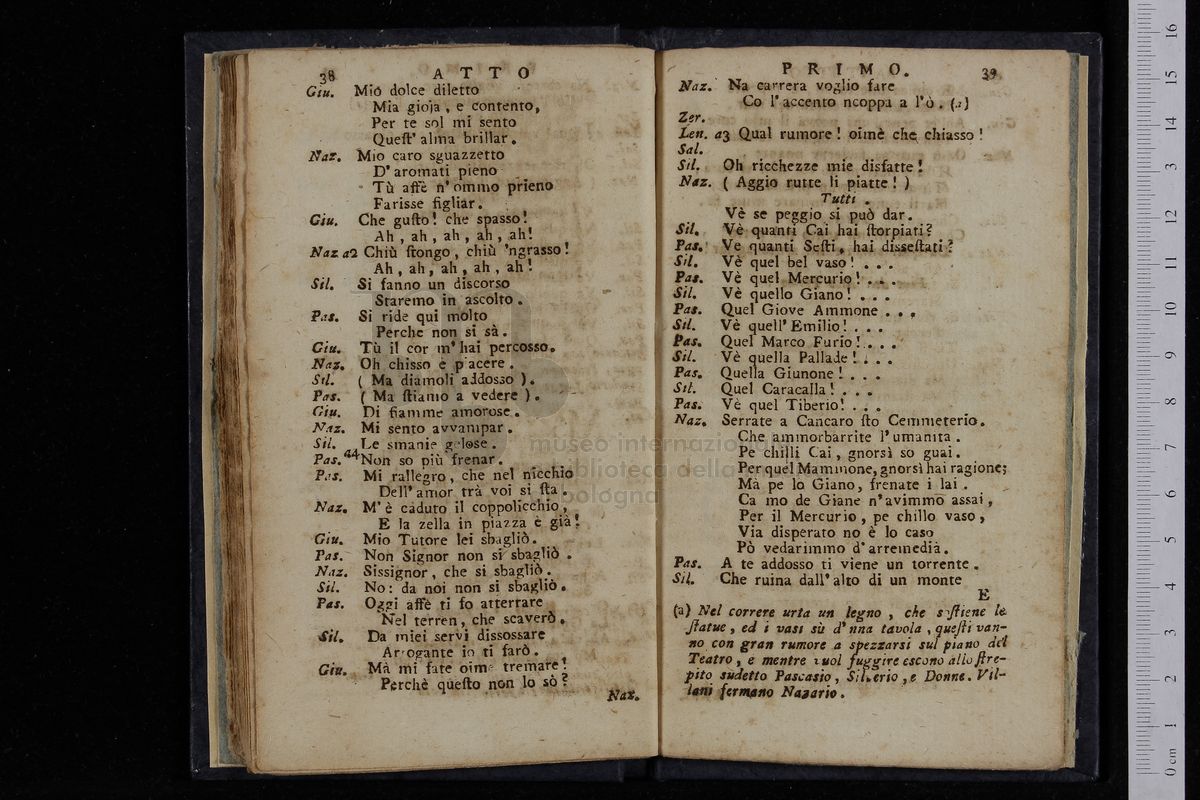 38 ATTO
Giu. Mio dolce diletto
Mia gioja, e contento,
Per te sol mi sento
Quest' alma brillar.
Naz. Mio caro sguazzetto
D' aromati pieno
Tù affè n' ommo prieno
Farisse figliar.
Giu. Che gusto! che spasso!
Ah, ah, ah, ah, ah!
Naz a2 Chiù stongo, chiù 'ngrasso!
Ah, ah, ah, ah, ah!
Sil. Si fanno un discorso
Staremo in ascolto.
Pas. Si ride quì molto
Perche non si sà.
Giu. Tù il cor m' hai percosso.
Naz. Oh chisso è piacere.
Sil. ( Ma diamoli addosso ).
Pas. ( Ma stiamo a vedere ).
Giu. Di fiamme amorose.
Naz. Mi sento avvampar.
Sil. Le smanie gelose.
Pas. a4 Non so più frenar.
Pas. Mi rallegro, che nel nicchio
Dell' amor trà voi si sta.
Naz. M' è caduto il coppolicchio,
E la zella in piazza è già!
Giu. Mio Tutore lei sbagliò.
Pas. Non Signor non si sbagliò.
Naz. Sissignor, che si sbagliò.
Sil. No: da noi non si sbagliò.
Pas. Oggi affè ti fo atterrare
Nel terren, che scaverò.
Sil. Da miei servi dissossare
Arrogante io ti farò.
Giu. Mà mi fate oimè tremare!
Perchè questo non lo sò?
Naz.
PRIMO. 39
Naz. Na carrera voglio fare
Co l' accento ncoppa a l' ò. (a)
Zer.
Len. a3 Qual rumore! oimè che chiasso!
Sal.
Sil. Oh ricchezze mie disfatte!
Naz. ( Aggio rutte li piatte! )
Tutti.
Vè se peggio si può dar.
Sil. Vè quanti Cai hai storpiati?
Pas. Ve quanti Sesti, hai dissestati?
Sil. Vè quel bel vaso! . . .
Pas. Vè quel Mercurio! . . .
Sil. Vè quello Giano! . . .
Pas. Quel Giove Ammone . . .
Sil. Vè quell' Emilio! . . .
Pas. Quel Marco Furio! . . .
Sil. Vè quella Pallade! . . .
Pas. Quella Giunone! . . .
Sil. Quel Caracalla! . . .
Pas. Vè quel Tiberio! . . .
Naz. Serrate a Cancaro sto Cemmeterio.
Che ammorbarrite l' umanità.
Pe chilli Cai, gnorsì so guai.
Per quel Mammone, gnorsì hai ragione;
Mà pe lo Giano, frenate i lai.
Ca mo de Giane n' avimmo assai,
Per il Mercurio, pe chillo vaso,
Via disperato no è lo caso
Pò vedarimmo d' arremedià.
Pas. A te addosso ti viene un torrente.
Sil. Che ruina dall' alto di un monte
E
(a) Nel correre urta un legno, che sostiene le
statue, ed i vasi sù d' una tavola, questi van-
no con gran rumore a spezzarsi sul piano del
Teatro, e mentre vuol fuggire escono allo stre-
pito sudetto Pascasio, Silverio, e Donne. Vil-
lani fermano Nazario.
museo internazionale
biblioteca della
bologna
0 cm 1 2 3 4 5 6 7 8 9 10 11 12 13 14 15 16